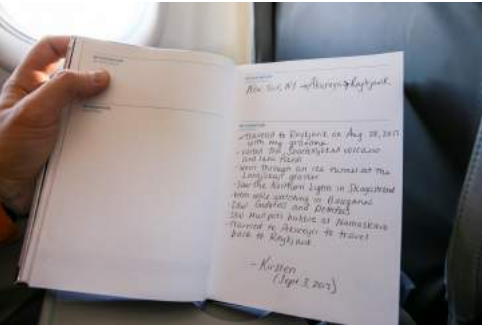 New York, NY → Akureyri → Reykjavik
- traveled to Reykjavik on Aug. 28, 2017
with my grandma
- visited the Snaefellsjokull volcano
and lava fields
- went through an ice tunnel at the
Langjokull glacier
- Saw the Northern Lights in Skagastrond
- Went whale watching in Dalvik
- Saw Godafoss and Dettifoss
- Saw mudpots bubble at Namaskard
- Traveled to Akureyri to travel
back to Reykjavik
- Kirsten
(Sept 3, 2017)